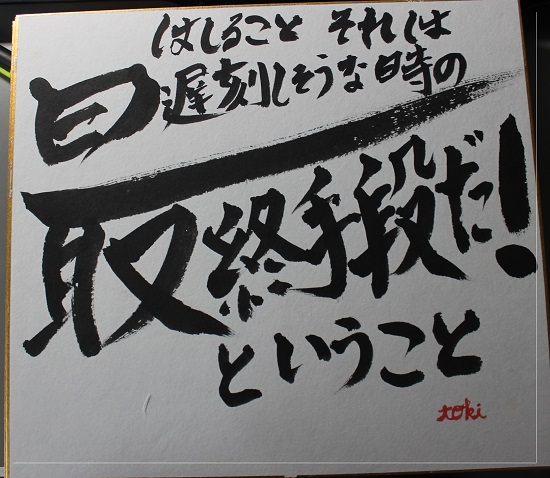 はしること それは
遅刻しそうな時の
最終手段だ!
ということ
toki